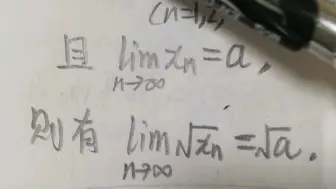 (n=1,2,
且 lim xₙ = a,
n→∞
则有 lim √xₙ = √a.
n→∞